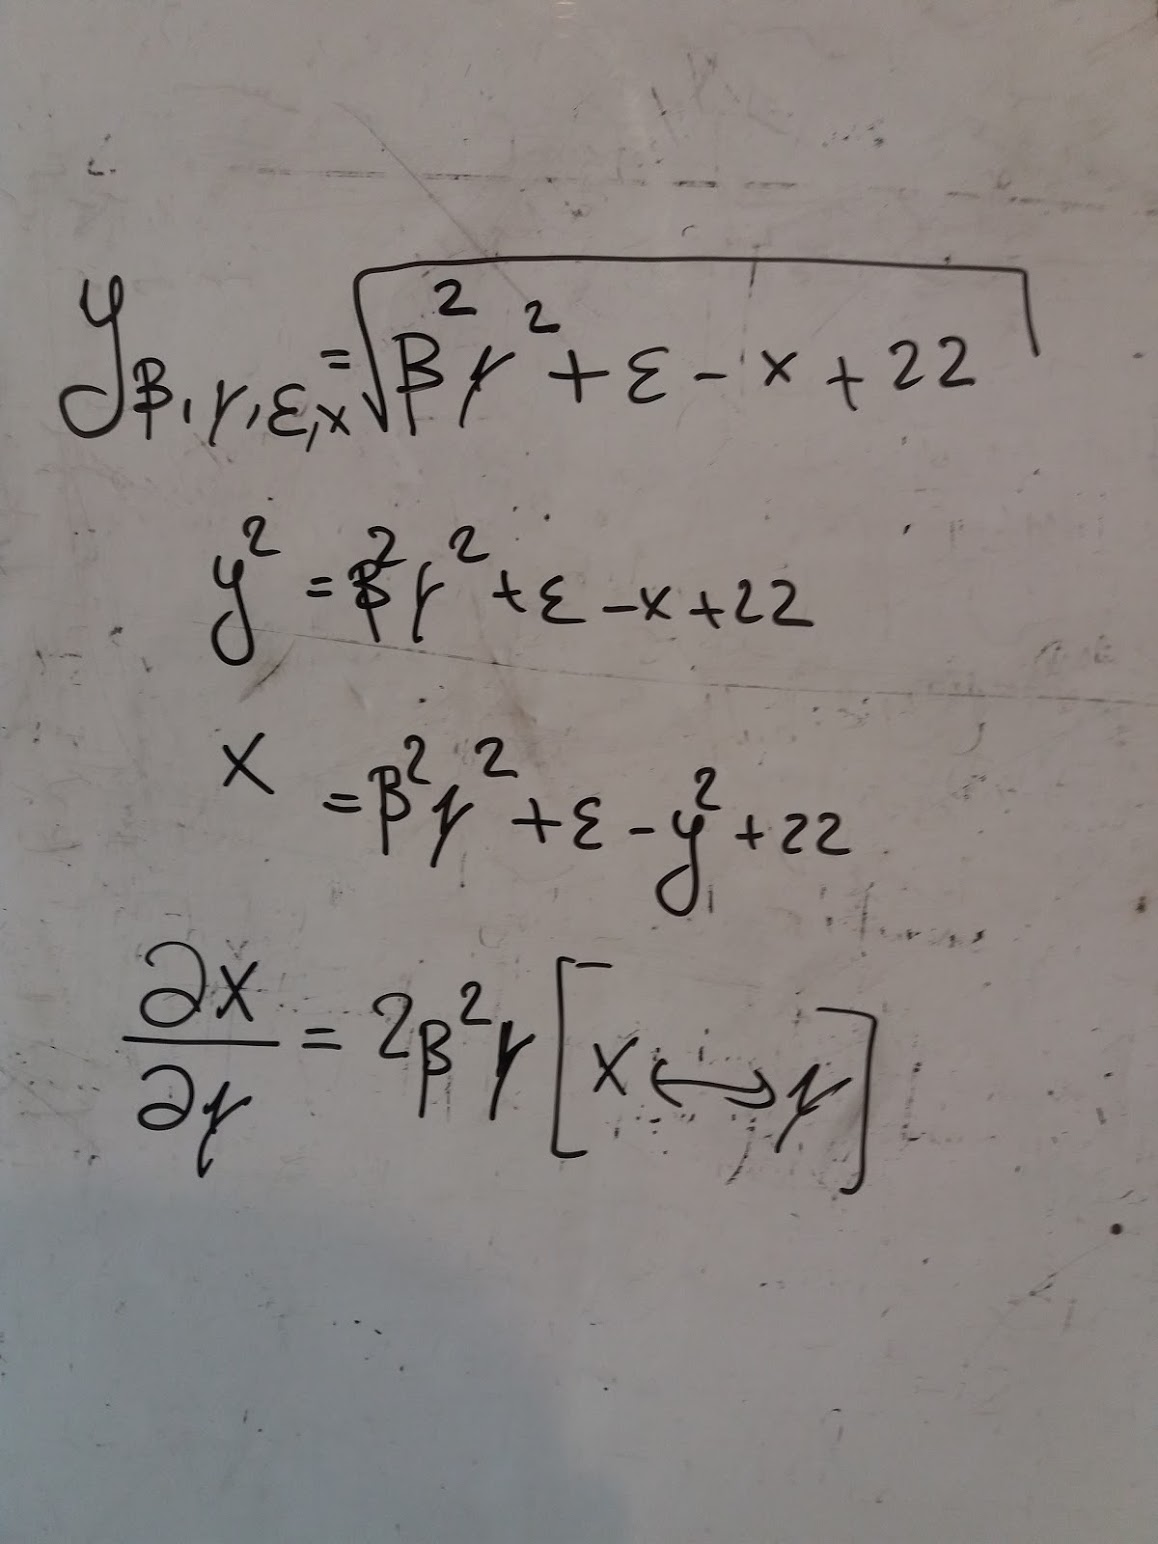 y_{β,γ,ε,x} = √(β²γ² + ε - x + 22)
y² = β²γ² + ε - x + 22
x = β²γ² + ε - y² + 22
∂x/∂γ = 2β²γ [x ↔ γ]